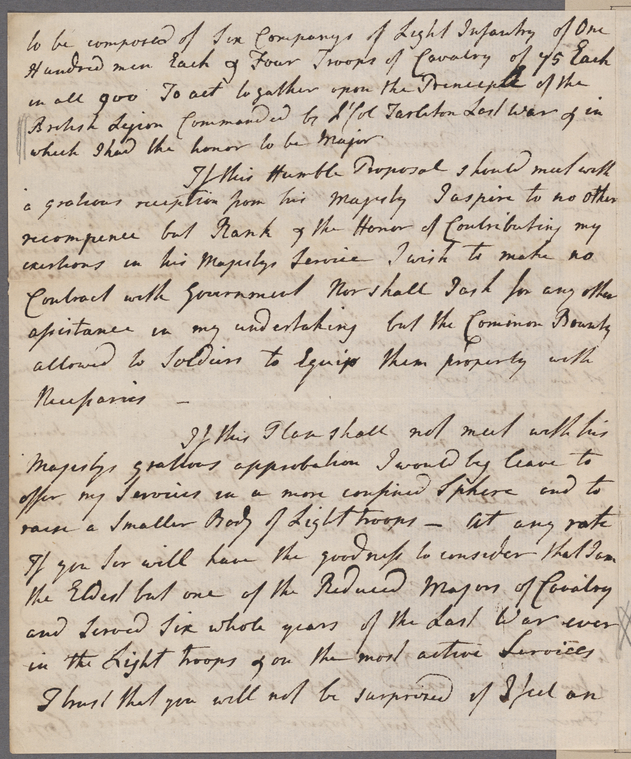 to be composed of Six Companys of Light Infantry of One
Hundred men Each & Four Troops of Cavalry of 75 Each
in all 900 To act togather upon the Principle of the
British Legion Commanded by Lt Col Tarleton Last War & in
which I had the honor to be Major
If this Humble Proposal should meet with
a gratious reception from his Majesty I aspire to no other
recompence but Rank & the Honor of Contributing my
exertions in his Majestys Service I wish to make no
Contract with Government Nor shall I ask for any other
assistance in my undertaking but the Common Bounty
allowed to Soldiers to Equip them properly with
Necessaries —
If this Plan shall not meet with his
Majestys gratious approbation I would beg leave to
offer my Services in a more confined Sphere and to
raise a Smaller Body of Light troops — At any rate
If you Sir will have the goodness to consider that I am
the Eldest but one of the Reduced Majors of Cavalry
and Served Six whole years of the Last War ever
in the Light troops & on the most active Services
I trust that you will not be surprized if I feel an